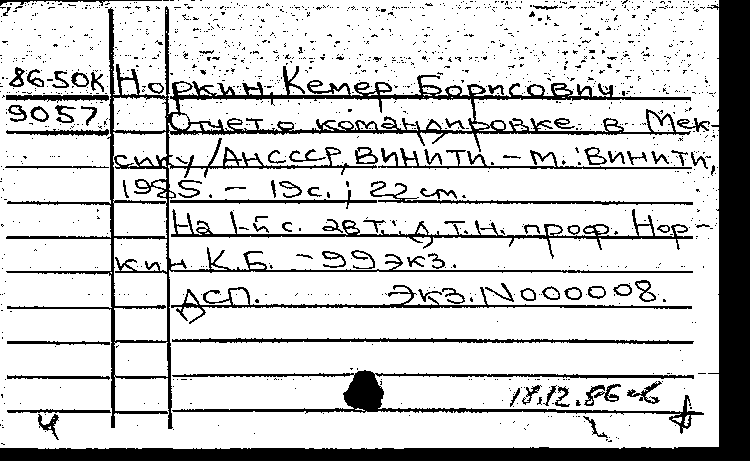 86-50К Норкин, Кемер Борисович.
9057 Отчет о командировке в Мек-
сику /АНСССР, ВИНИТИ. – М.: ВИНИТИ,
1985. – 19с.; 22 см.
На 1-й с. авт.: Д.Т.Н., проф. Нор-
кин К.Б. – 99 экз.
ДСП. Экз. N000008.
18.12.86
4